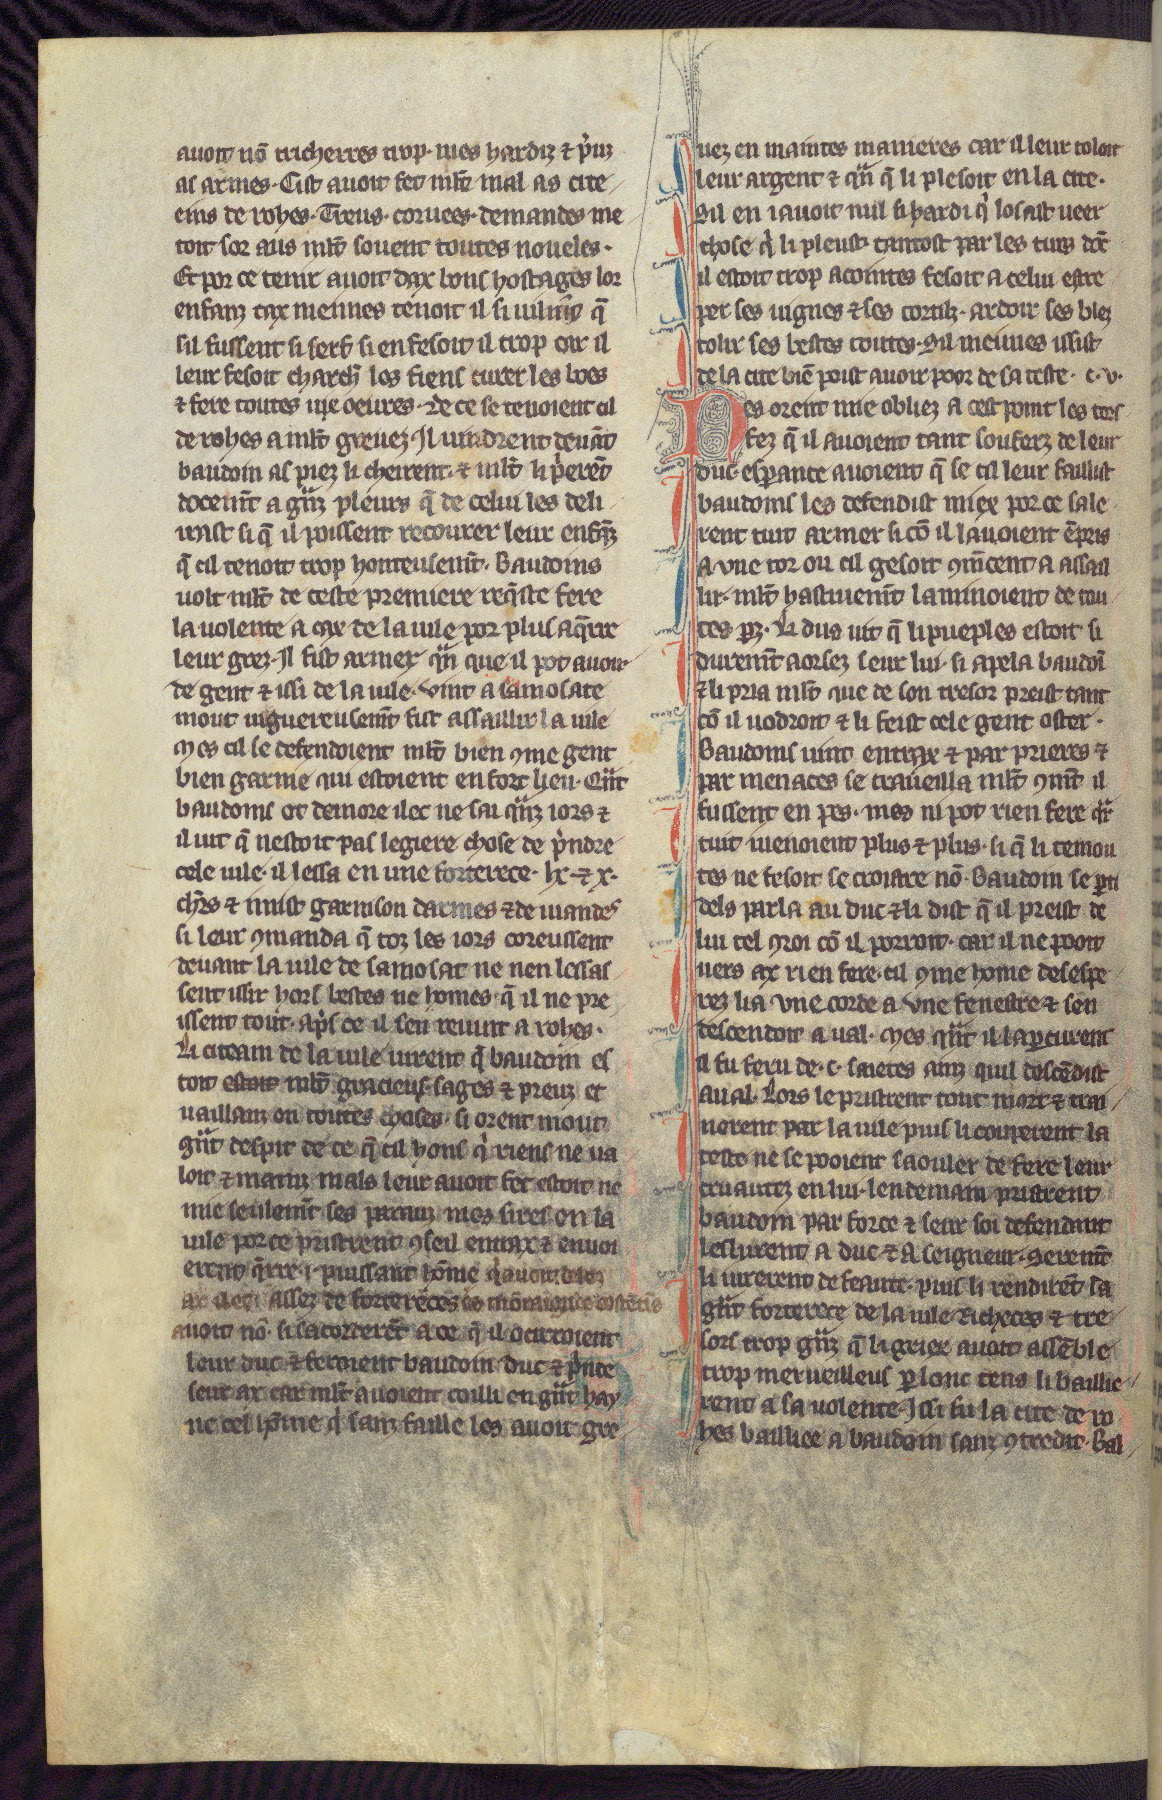 avoit nō tricherres trop · mes hardiz ⁊ p̄uz
as armes · Cist avoit fet ml̄t mal as cite
eins de rohes · Treus · corvees · demandes me
toit sor aus ml̄t sovent toutes noveles ·
Et por ce tenir avoit dax bons hostages lor
enfanz
qax meimes tenoit il si vilm̄t q̄
sil fussent si serf · si en fesoit il trop car il
leur fesoit charch̄ les fiens curer les boes
⁊ fere toutes viſe oeures · De ce se tenoient cil
de rohes a ml̄t grevez · Il vindrent devāt
baudoin as piez li cheirent · ⁊ ml̄t li p̄erēt
docem̄t a gr̄nz pleurs q̄ de celui les deli
vrast si q̄ il poissent recovrer leur enfāz
q̄ cil tenoit trop honteusem̄t · Baudoins
volt ml̄t de ceste premiere req̄ste fere
la volente a ax de la vile por plus aq̄rre
leur grez · Il fist armer qn̄ que il pot avoir
de gent ⁊ issi de la vile · vint a samosate
mout viguereusem̄t fist assaillir la vile
Mes cil se defendoient ml̄t bien ꝯme gent
bien garnie qui estoient en fort lieu · Qn̄t
baudoins ot demore ilec ne sai qn̄z iors ⁊
il vit q̄ nestoit pas legiere chose de p̄ndre
cele vile · il lessa en une forterece · lx · ⁊ x ·
ch̄rs ⁊ i mist garnison darmes ⁊ de viandes
si leur ꝯmanda q̄ toz les iors coreussent
devant la vile de samosat ne nen lessas
sent issir hors bestes ne homes · q̄ il ne pre
issent tout · ap̄s ce il sen revint a rohes ·
Li citeain de la vile virent q̄ baudoin es
toit estoit ml̄t gracieus · sages ⁊ preuz et
vaillanz en toutes choses · si orent mout
gn̄t despit de ce q̄ cil hons q̄ riens ne va
loit ⁊ mainz mals leur avoit fet estoit ne
mie seulem̄t ses parauz mes sires en la
vile por ce pristrent ꝯseil entrax ⁊ envoi
erent q̄rre · i · puissant hōme q̄ avoit delez
ax ilec assez de forterēces es mōtaignes costētīs
avoit nō · si sacorderēt a ce q̄ il ocirroient
leur duc ⁊ feroient baudoin duc ⁊ p̄nce
seur ax car ml̄t avoient coilli en gn̄t hay
ne cel hōme q̄ sanz faille les avoit gre
vez en maintes manieres car il leur toloit
leur argent ⁊ qn̄ q̄ li plesoit en la cite ·
Sil en i avoit nul si hardi q̄ losast veer
chose q̄ li pleust · tantost par les turs dōt
il estoit trop acointes fesoit a celui estre
per ses vignes ⁊ ses cortilz · ardoir ses blez
tolir ses bestes toutes · Sil meimes issist
de la cite biē poist avoir poor de sa teste · c · v ·
Nes orent mie obliez a cest point les tors
fez q̄ il avoient tant souferz de leur
duc · esp̄ance avoient q̄ se cil leur faillist
baudoins les defendist miex por ce sale
rent tuit armer si cō il lavoient ēpris
A une tor ou cil gesoit ꝯmēcent a assail
lir · ml̄t hastivem̄t la minoient de tou
tes pz · Li dus vit q̄ li pueples estoit si
durem̄t aorsez seur lui · si apela baudoī
⁊ li pria ml̄t que de son tresor preist tant
cō il vodroit ⁊ li feist cele gent oster ·
Baudoins vint entrax ⁊ par prieres ⁊
par menaces se traveilla ml̄t ꝯm̄t il
fussent en pes · mes ni pot rien fere qr̄
tuit venoient plus ⁊ plus · si q̄ li temou
tes ne fesoit se croistre nō · Baudoin se p̄ti
dels parla au duc ⁊ li dist q̄ il preist de
lui tel ꝯroi cō il porroit · car il ne pooit
vers ax rien fere · cil ꝯme home desespe
rez lia une corde a une fenestre ⁊ sen
descendoit a val · Mes qn̄t il lap̄curent
il fu feru de · c · saietes ainz quil descēdist
aval · Lors le pristrent tout mort ⁊ trai
nerent par la vile puis li couperent la
teste ne se pooient saouler de fere leur
cruautez en lui · lendemain pristrent
baudoin par force ⁊ seur soi defendant
leslurent a duc ⁊ a seigneur · Serem̄t
li iurerent de feaute · puis li rendirēt la
gn̄t forterece de la vile richeces ⁊ tre
sors trop gn̄z q̄ li griex avoit assēble
trop merveilleus p̄ lonc tens li baillie
rent a sa volente · Issi fu la cite de ro
hes bailliee a baudoin sanz ꝯtredit · Bal